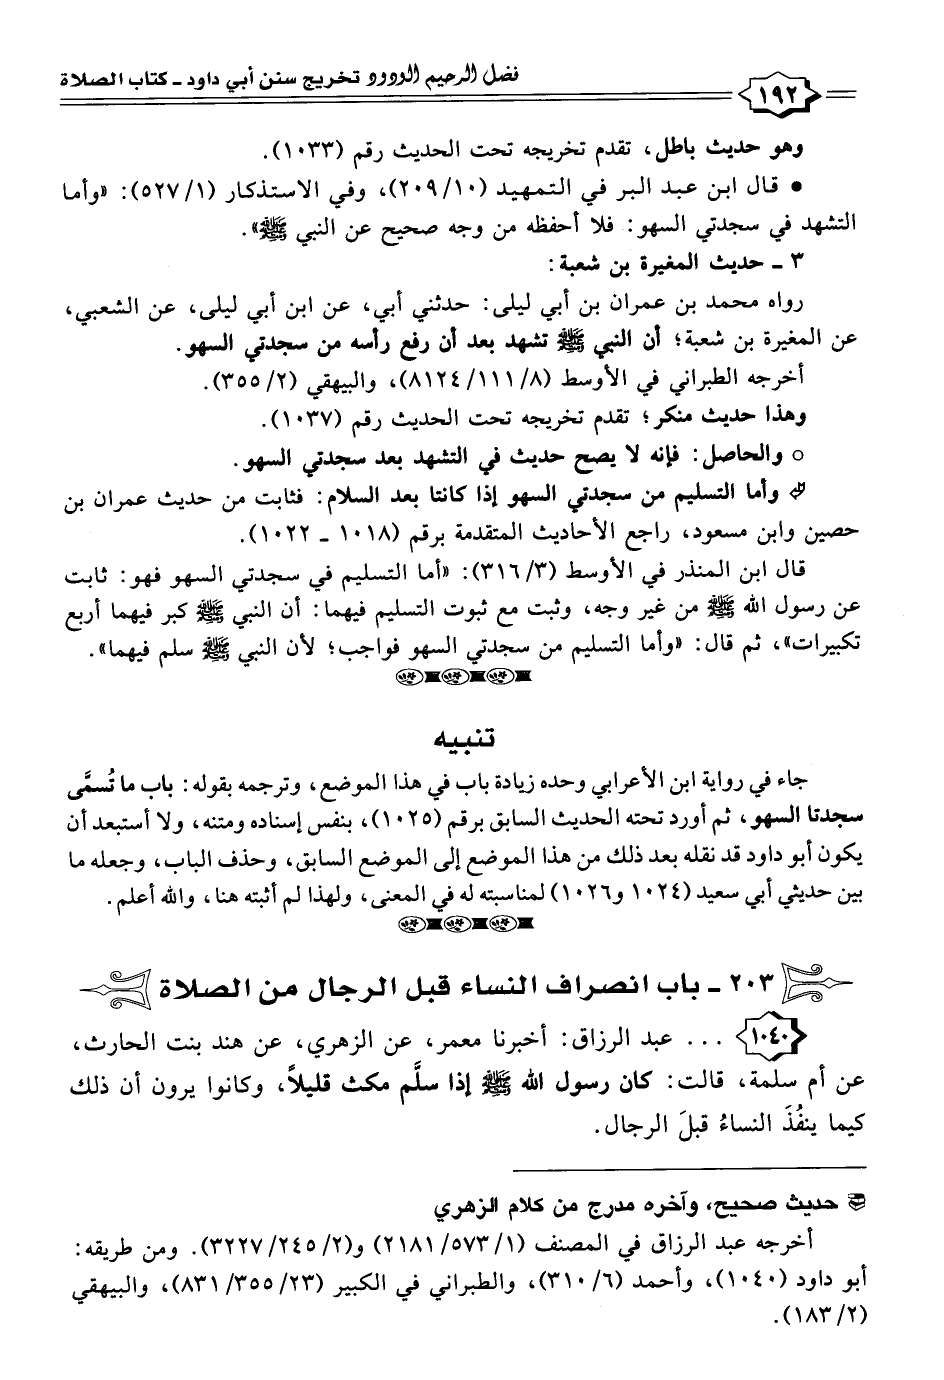 ١٩٢
فضل الرحيم الودود تخريج سنن أبي داود ـ كتاب الصلاة
وهو حديث باطل، تقدم تخريجه تحت الحديث رقم (١٠٣٣).
• قال ابن عبد البر في التمهيد (٢٠٩/١٠)، وفي الاستذكار (٥٢٧/١): «وأما
التشهد في سجدتي السهو: فلا أحفظه من وجه صحيح عن النبي ﷺ».
٣ ـ حديث المغيرة بن شعبة:
رواه محمد بن عمران بن أبي ليلى: حدثني أبي، عن ابن أبي ليلى، عن الشعبي،
عن المغيرة بن شعبة؛ أن النبي ﷺ تشهد بعد أن رفع رأسه من سجدتي السهو.
أخرجه الطبراني في الأوسط (٨١٢٤/١١١/٨)، والبيهقي (٣٥٥/٢).
وهذا حديث منكر؛ تقدم تخريجه تحت الحديث رقم (١٠٣٧).
○ والحاصل: فإنه لا يصح حديث في التشهد بعد سجدتي السهو.
وأما التسليم من سجدتي السهو إذا كانتا بعد السلام: فثابت من حديث عمران بن
حصين وابن مسعود، راجع الأحاديث المتقدمة برقم (١٠١٨ ـ ١٠٢٢).
قال ابن المنذر في الأوسط (٣١٦/٣): «أما التسليم في سجدتي السهو فهو: ثابت
عن رسول الله ﷺ من غير وجه، وثبت مع ثبوت التسليم فيهما: أن النبي ﷺ كبر فيهما أربع
تكبيرات»، ثم قال: «وأما التسليم من سجدتي السهو فواجب؛ لأن النبي ﷺ سلم فيهما».
تنبيه
جاء في رواية ابن الأعرابي وحده زيادة باب في هذا الموضع، وترجمه بقوله: باب ما تُسمَّى
سجدتا السهو، ثم أورد تحته الحديث السابق برقم (١٠٢٥)، بنفس إسناده ومتنه، ولا أستبعد أن
يكون أبو داود قد نقله بعد ذلك من هذا الموضع إلى الموضع السابق، وحذف الباب، وجعله ما
بين حديثي أبي سعيد (١٠٢٤ و١٠٢٦) لمناسبته له في المعنى، ولهذا لم أثبته هنا، والله أعلم.
٢٠٣ ـ باب انصراف النساء قبل الرجال من الصلاة
١٠٤٠ ... عبد الرزاق: أخبرنا معمر، عن الزهري، عن هند بنت الحارث،
عن أم سلمة، قالت: كان رسول الله ﷺ إذا سلَّم مكث قليلاً، وكانوا يرون أن ذلك
كيما ينفُذَ النساءُ قبلَ الرجال.
حديث صحيح، وآخره مدرج من كلام الزهري
أخرجه عبد الرزاق في المصنف (٢١٨١/٥٧٣/١) و(٣٢٢٧/٢٤٥/٢). ومن طريقه:
أبو داود (١٠٤٠)، وأحمد (٣١٠/٦)، والطبراني في الكبير (٨٣١/٣٥٥/٢٣)، والبيهقي
(١٨٣/٢).